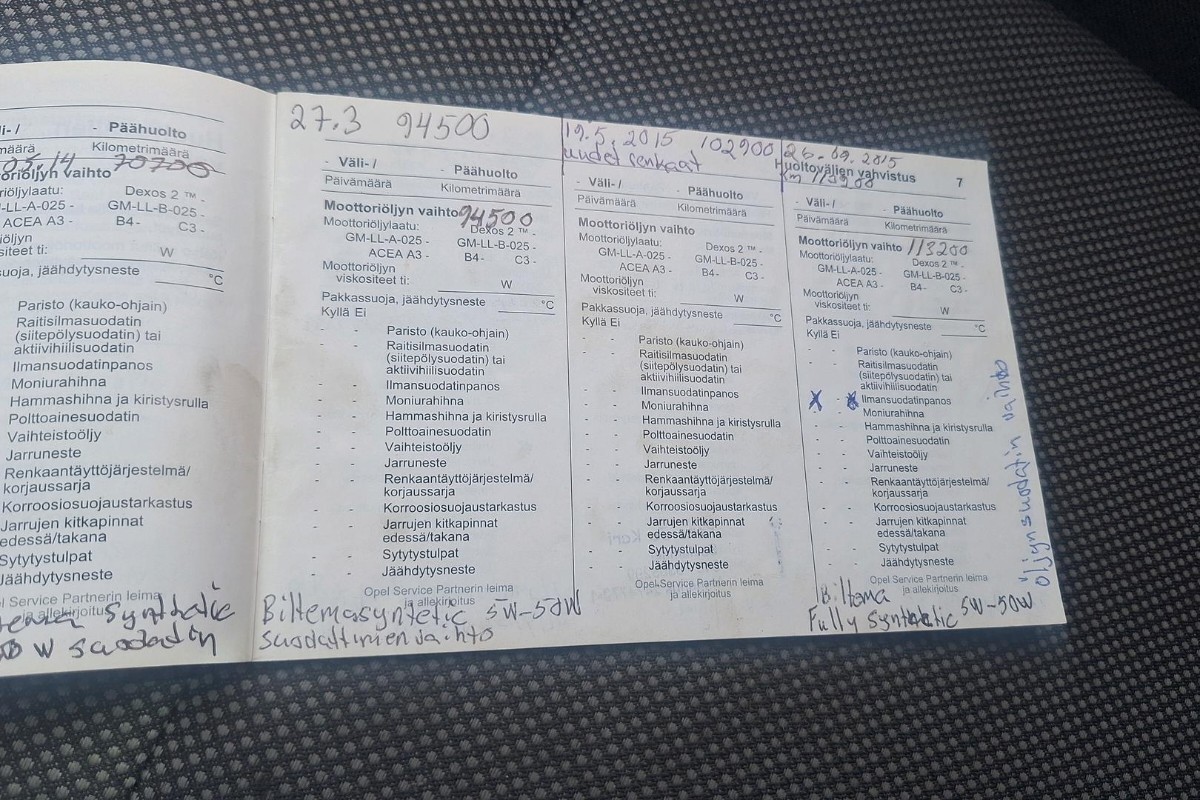 Päähuolto
Kilometrimäärä
05.14 70700
Dexos 2 ™ -
GM-LL-B-025 -
ACEA A3 - B4- C3 -
W
°C
Paristo (kauko-ohjain)
Raitisilmasuodatin
(siitepölysuodatin) tai
aktiivihiilisuodatin
Ilmansuodatinpanos
Moniurahihna
Hammashihna ja kiristysrulla
Polttoainesuodatin
Vaihteistoöljy
Jarruneste
Renkaantäyttöjärjestelmä/
korjaussarja
Korroosiosuojaustarkastus
Jarrujen kitkapinnat
edessä/takana
Sytytystulpat
Jäähdytysneste
Service Partnerin leima
ja allekirjoitus
Synthetic
W suodatin
27.3 94500
- Väli- / - Päähuolto
Päivämäärä Kilometrimäärä
Moottoriöljyn vaihto 94500
Moottoriöljylaatu: Dexos 2 ™ -
GM-LL-A-025 - GM-LL-B-025 -
ACEA A3 - B4- C3 -
Moottoriöljyn
viskositeet ti: W
Pakkassuoja, jäähdytysneste °C
Kyllä Ei
- - Paristo (kauko-ohjain)
- - Raitisilmasuodatin
(siitepölysuodatin) tai
aktiivihiilisuodatin
- - Ilmansuodatinpanos
- - Moniurahihna
- - Hammashihna ja kiristysrulla
- - Polttoainesuodatin
- - Vaihteistoöljy
- - Jarruneste
- - Renkaantäyttöjärjestelmä/
korjaussarja
- - Korroosiosuojaustarkastus
- - Jarrujen kitkapinnat
edessä/takana
- - Sytytystulpat
- - Jäähdytysneste
Opel Service Partnerin leima
ja allekirjoitus
Biltemasyntetic 5W-50W
suodattimien vaihto
19.5.2015 102900
uudet renkaat
- Väli- / - Päähuolto
Päivämäärä Kilometrimäärä
Moottoriöljyn vaihto
Moottoriöljylaatu: Dexos 2 ™ -
GM-LL-A-025 - GM-LL-B-025 -
ACEA A3 - B4- C3 -
Moottoriöljyn
viskositeet ti: W
Pakkassuoja, jäähdytysneste °C
Kyllä Ei
- - Paristo (kauko-ohjain)
- - Raitisilmasuodatin
(siitepölysuodatin) tai
aktiivihiilisuodatin
- - Ilmansuodatinpanos
- - Moniurahihna
- - Hammashihna ja kiristysrulla
- - Polttoainesuodatin
- - Vaihteistoöljy
- - Jarruneste
- - Renkaantäyttöjärjestelmä/
korjaussarja
- - Korroosiosuojaustarkastus
- - Jarrujen kitkapinnat
edessä/takana
- - Sytytystulpat
- - Jäähdytysneste
Opel Service Partnerin leima
ja allekirjoitus
26.09.2015
Huoltovälien vahvistus 7
km
- Väli- / - Päähuolto
Päivämäärä Kilometrimäärä
Moottoriöljyn vaihto 113200
Moottoriöljylaatu: Dexos 2 ™ -
GM-LL-A-025 - GM-LL-B-025 -
ACEA A3 - B4- C3 -
Moottoriöljyn
viskositeet ti: W
Pakkassuoja, jäähdytysneste °C
Kyllä Ei
- - Paristo (kauko-ohjain)
- - Raitisilmasuodatin
(siitepölysuodatin) tai
aktiivihiilisuodatin
X - Ilmansuodatinpanos
- - Moniurahihna
- - Hammashihna ja kiristysrulla
- - Polttoainesuodatin
- - Vaihteistoöljy
- - Jarruneste
- - Renkaantäyttöjärjestelmä/
korjaussarja
- - Korroosiosuojaustarkastus
- - Jarrujen kitkapinnat
edessä/takana
- - Sytytystulpat
- - Jäähdytysneste
Opel Service Partnerin leima
ja allekirjoitus
Biltema
Fully Synthetic 5W-50W
öljynsuodatin vaihto